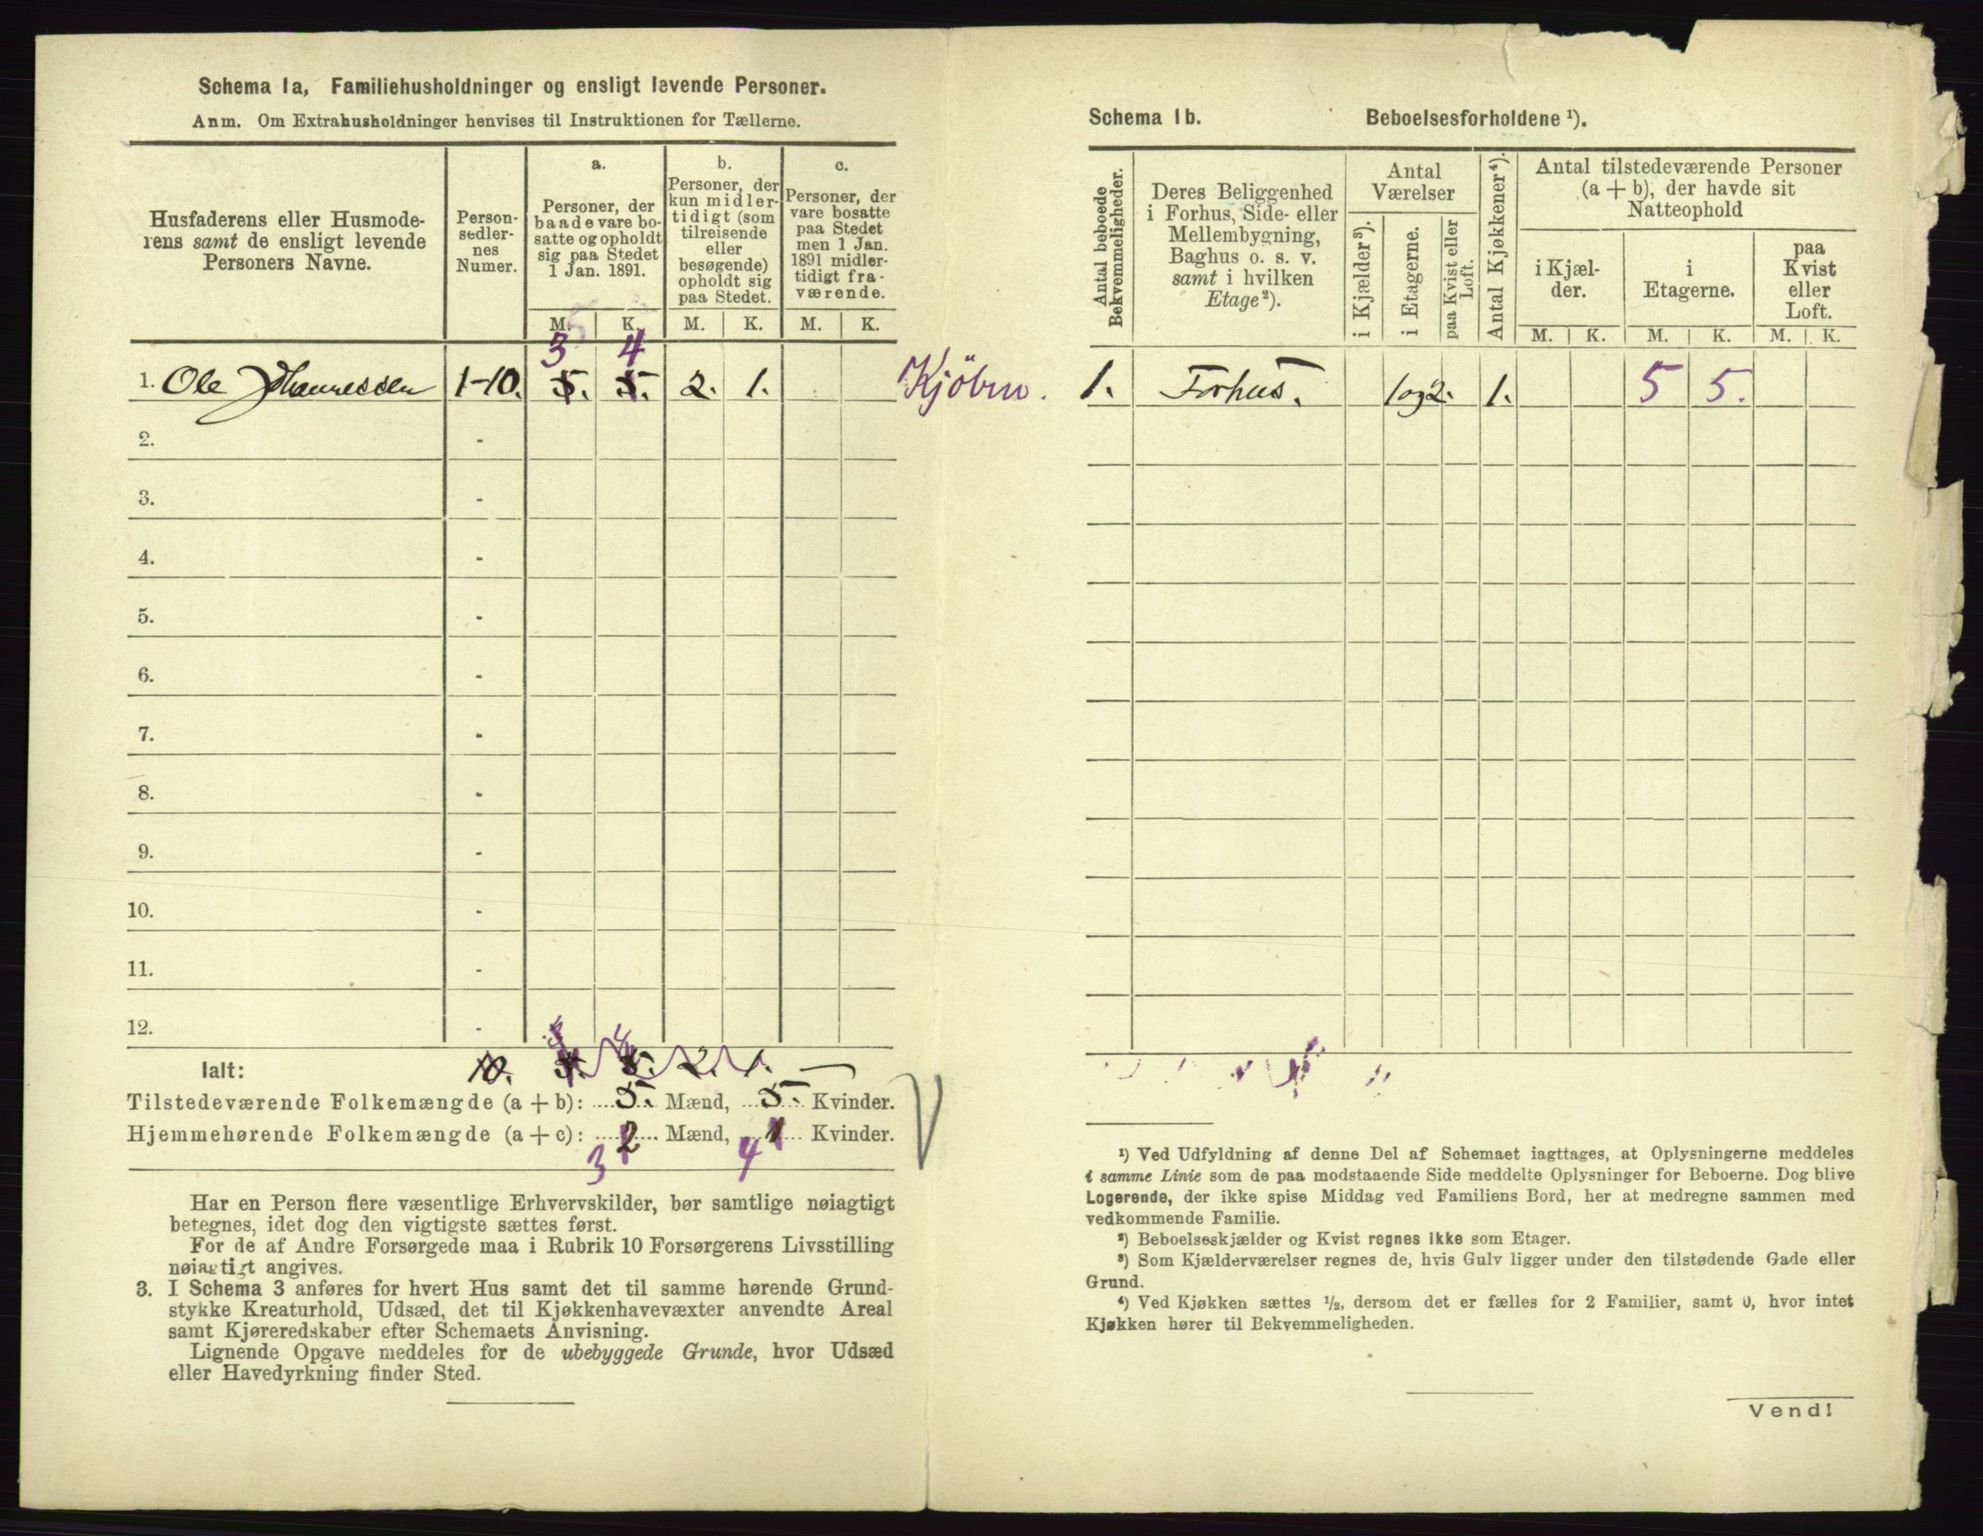 Schema 1a, Familiehusholdninger og ensligt levende Personer.
Anm. Om Extrahusholdninger henvises til Instruktionen for Tællerne.
Husfaderens eller Husmode-
rens samt de ensligt levende
Personers Navne.
Person-
sedler-
nes
Numer.
a.
Personer, der
baade vare bo-
satte og opholdt
sig paa Stedet
1 Jan. 1891.
b.
Personer, der
kun midler-
tidigt (som
tilreisende
eller
besøgende)
opholdt sig
paa Stedet.
c.
Personer, der
vare bosatte
paa Stedet
men 1 Jan.
1891 midler-
tidigt fra-
værende.
M. K. M. K. M. K.
3 4
1. Ole Johannessen 1-10. 5. 5. 2. 1. Kjöbm.
2. -
3. -
4. -
5. -
6. -
7. -
8. -
9. -
10. -
11. -
12. -
Ialt: 10. 5. 5. 2. 1. —
Tilstedeværende Folkemængde (a + b): 5. Mænd, 5. Kvinder.
Hjemmehørende Folkemængde (a + c): 2 Mænd, 1 Kvinder.
3 4
Har en Person flere væsentlige Erhvervskilder, bør samtlige nøiagtigt
betegnes, idet dog den vigtigste sættes først.
For de af Andre Forsørgede maa i Rubrik 10 Forsørgerens Livsstilling
nøiagtigt angives.
3. I Schema 3 anføres for hvert Hus samt det til samme hørende Grund-
stykke Kreaturhold, Udsæd, det til Kjøkkenhavevæxter anvendte Areal
samt Kjøreredskaber efter Schemaets Anvisning.
Lignende Opgave meddeles for de ubebyggede Grunde, hvor Udsæd
eller Havedyrkning finder Sted.
Schema 1b. Beboelsesforholdene ¹).
Antal beboede
Bekvemmeligheder.
Deres Beliggenhed
i Forhus, Side- eller
Mellembygning,
Baghus o. s. v.
samt i hvilken
Etage²).
Antal
Værelser
i Kjælder³).
i Etagerne.
paa Kvist eller
Loft.
Antal Kjøkkener⁴).
Antal tilstedeværende Personer
(a + b), der havde sit
Natteophold
i Kjæl-
der.
i
Etagerne.
paa
Kvist
eller
Loft.
M. K. M. K. M. K.
1. Forhus. 1 og 2. 1. 5 5.
¹) Ved Udfyldning af denne Del af Schemaet iagttages, at Oplysningerne meddeles
i samme Linie som de paa modstaaende Side meddelte Oplysninger for Beboerne. Dog blive
Logerende, der ikke spise Middag ved Familiens Bord, her at medregne sammen med
vedkommende Familie.
²) Beboelseskjælder og Kvist regnes ikke som Etager.
³) Som Kjælderværelser regnes de, hvis Gulv ligger under den tilstødende Gade eller
Grund.
⁴) Ved Kjøkken sættes ½, dersom det er fælles for 2 Familier, samt 0, hvor intet
Kjøkken hører til Bekvemmeligheden.
Vend!